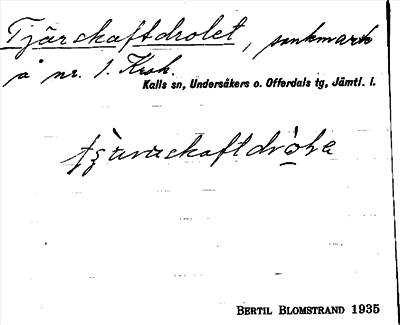 Tjärskaftdrolet, sankmark
å nr. 1. Krok.
Kalls sn, Undersåkers o. Offerdals tg, Jämtl. l.
BERTIL BLOMSTRAND 1935